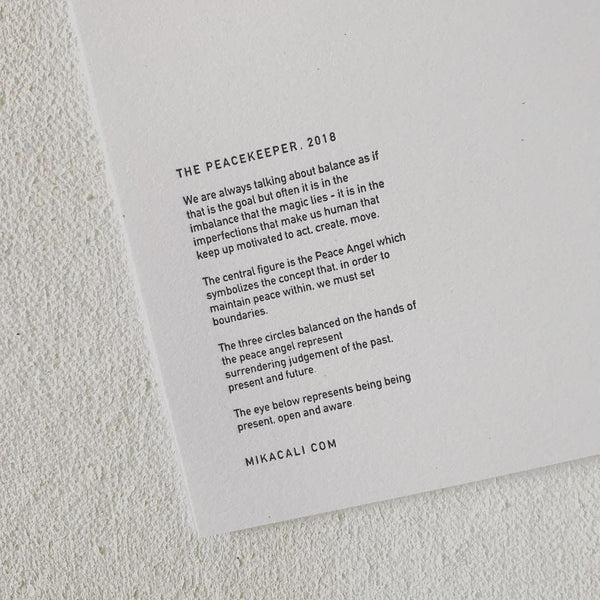 THE PEACEKEEPER. 2018
We are always talking about balance as if
that is the goal but often it is in the
imbalance that the magic lies - it is in the
imperfections that make us human that
keep up motivated to act. create. move.
The central figure is the Peace Angel which
symbolizes the concept that. in order to
maintain peace within. we must set
boundaries.
The three circles balanced on the hands of
the peace angel represent
surrendering judgement of the past.
present and future.
The eye below represents being being
present. open and aware.
MIKACALI COM